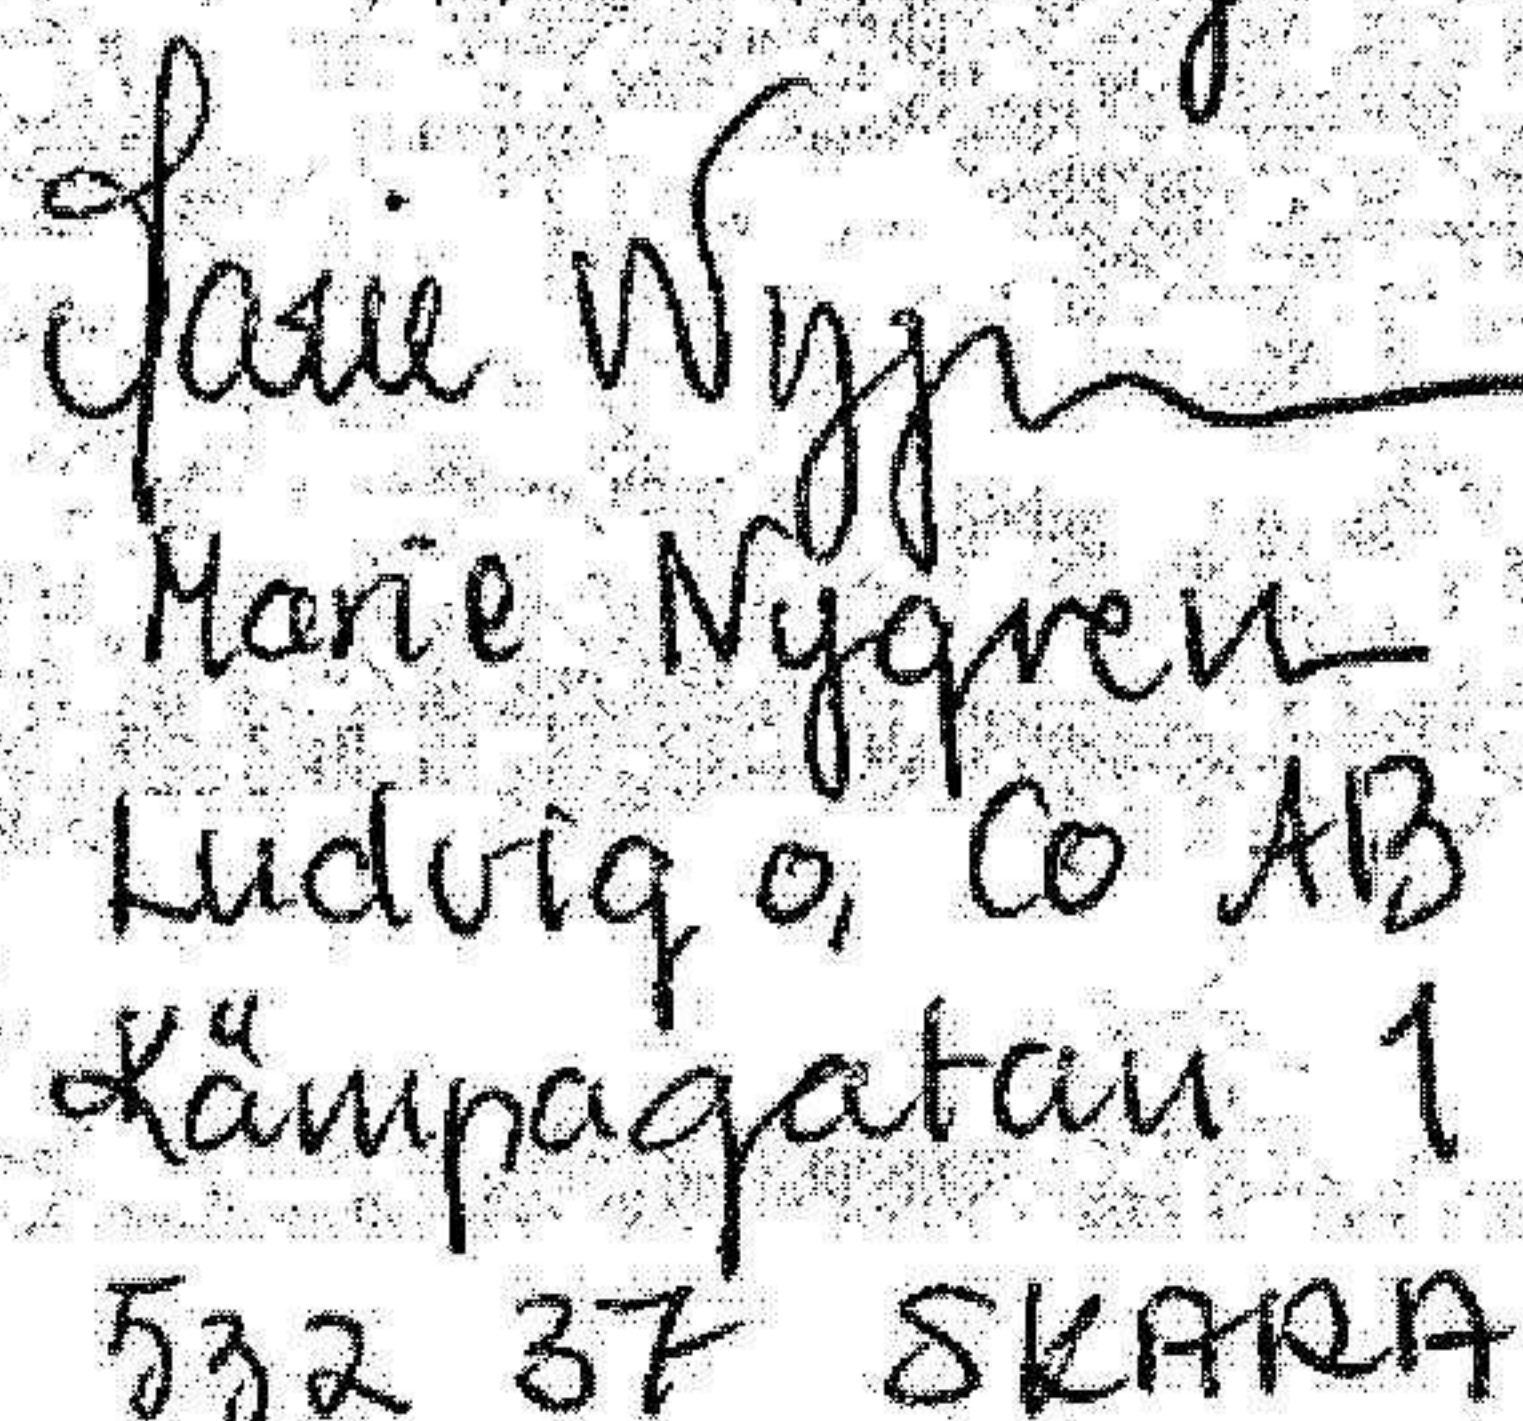 Marie Nygren
Marie Nygren
Ludvig o, Co AB
Kämpagatan 1
532 37 SKARA